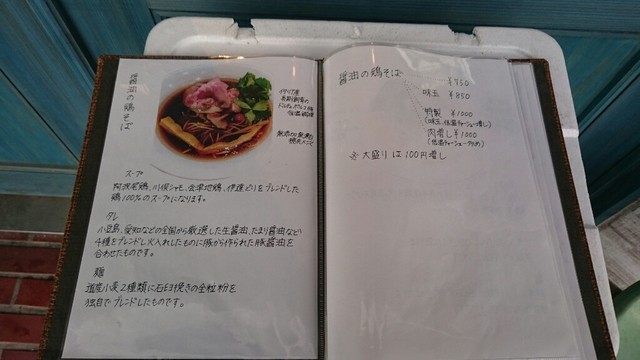 醤油の鶏そば
イタリア産
低温調理
スープ
阿波尾鶏、川俣シャモ、会津地鶏、伊達どりをブレンドした
鶏100%のスープになります。
タレ
小豆島、愛知などの全国から厳選した生醤油、たまり醤油など
4種をブレンドし火入れしたものに豚から作られた豚醤油を
合わせたものです。
麺
道産小麦2種類に石臼挽きの全粒粉を
独自でブレンドしたものです。
醤油の鶏そば
¥750
味玉 ¥850
特製 ¥1000
(味玉、低温チャーシュー増し)
肉増し¥1000
※大盛りは100円増し